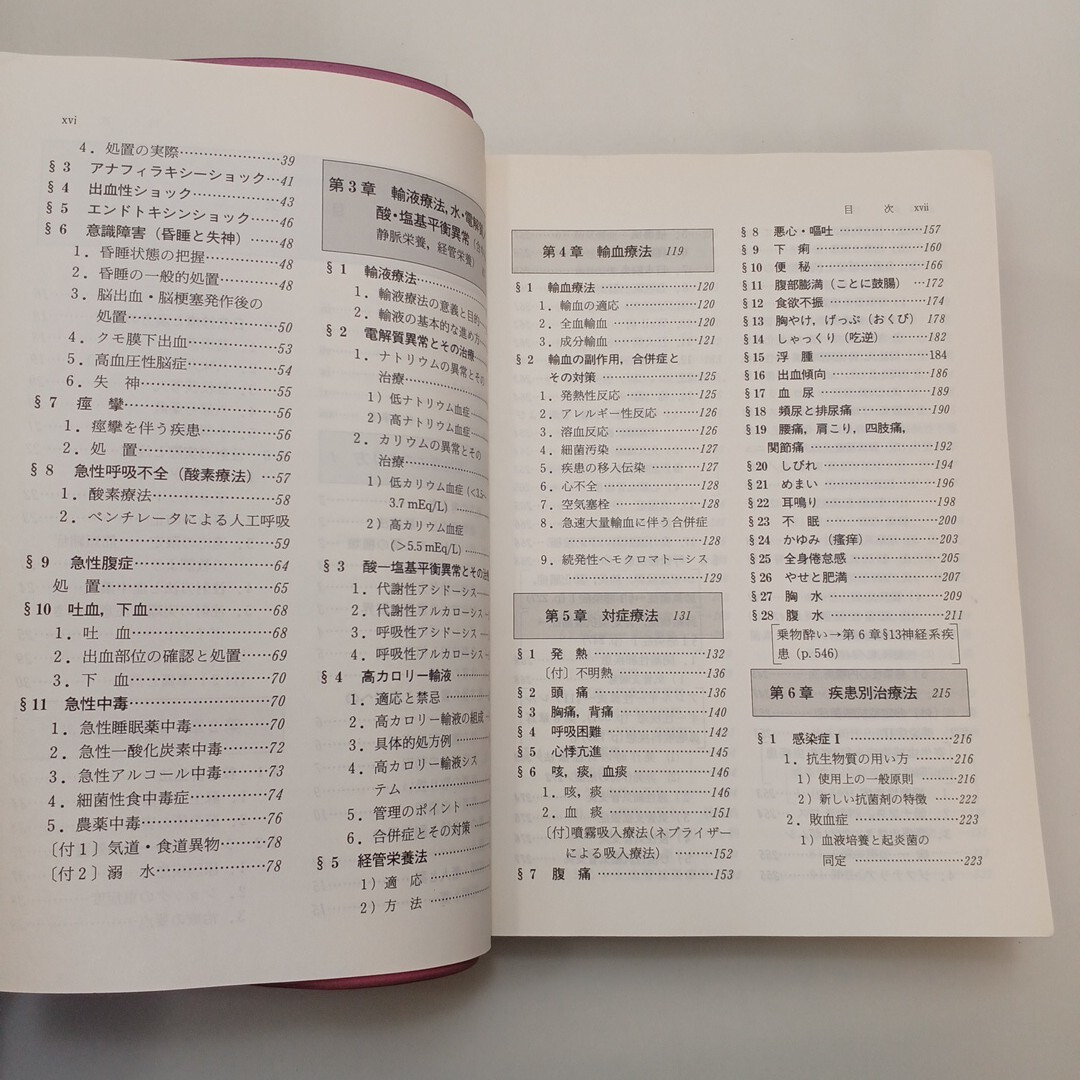 xvi
4．処置の実際……………………39
§3 アナフィラキシーショック…41
§4 出血性ショック………………43
§5 エンドトキシンショック……46
§6 意識障害（昏睡と失神）……48
1．昏睡状態の把握………………48
2．昏睡の一般的処置……………48
3．脳出血・脳梗塞発作後の
処置……………………………50
4．クモ膜下出血…………………53
5．高血圧性脳症…………………54
6．失 神…………………………55
§7 痙 攣…………………………56
1．痙攣を伴う疾患………………56
2．処 置…………………………56
§8 急性呼吸不全（酸素療法）…57
1．酸素療法………………………58
2．ベンチレータによる人工呼吸
……………………………………59
§9 急性腹症………………………64
処 置……………………………65
§10 吐血，下血……………………68
1．吐 血…………………………68
2．出血部位の確認と処置………69
3．下 血…………………………70
§11 急性中毒………………………70
1．急性睡眠薬中毒………………70
2．急性一酸化炭素中毒…………72
3．急性アルコール中毒…………73
4．細菌性食中毒症………………74
5．農薬中毒………………………76
〔付1〕気道・食道異物…………78
〔付2〕溺 水……………………78
第3章 輸液療法，水・電解質
酸・塩基平衡異常
静脈栄養，経管栄養）
§1 輸液療法
1．輸液療法の意義と目的
2．輸液の基本的な進め方
§2 電解質異常とその治療
1．ナトリウムの異常とその
治療
1）低ナトリウム血症
2）高ナトリウム血症
2．カリウムの異常とその
治療
1）低カリウム血症（<3.5~
3.7 mEq/L）
2）高カリウム血症
（>5.5 mEq/L）
§3 酸―塩基平衡異常とその治
1．代謝性アシドーシス
2．代謝性アルカローシス
3．呼吸性アシドーシス
4．呼吸性アルカローシス
§4 高カロリー輸液
1．適応と禁忌
2．高カロリー輸液の組成
3．具体的処方例
4．高カロリー輸液シス
テム
5．管理のポイント
6．合併症とその対策
§5 経管栄養法
1）適 応
2）方 法
目 次 xvii
第4章 輸血療法 119
§1 輸血療法……………………120
1．輸血の適応…………………120
2．全血輸血……………………120
3．成分輸血……………………121
§2 輸血の副作用，合併症と
その対策……………………125
1．発熱性反応…………………125
2．アレルギー性反応…………126
3．溶血反応……………………126
4．細菌汚染……………………127
5．疾患の移入伝染……………127
6．心不全………………………128
7．空気塞栓……………………128
8．急速大量輸血に伴う合併症
…………………………………128
9．続発性ヘモクロマトーシス
…………………………………129
第5章 対症療法 131
§1 発 熱………………………132
〔付〕不明熱…………………136
§2 頭 痛………………………136
§3 胸痛，背痛…………………140
§4 呼吸困難……………………142
§5 心悸亢進……………………145
§6 咳，痰，血痰………………146
1．咳，痰………………………146
2．血 痰………………………151
〔付〕噴霧吸入療法（ネブライザー
による吸入療法）…………152
§7 腹 痛………………………153
§8 悪心・嘔吐…………………157
§9 下 痢………………………160
§10 便 秘………………………166
§11 腹部膨満（ことに鼓腸）…172
§12 食欲不振……………………174
§13 胸やけ，げっぷ（おくび） 178
§14 しゃっくり（吃逆）………182
§15 浮 腫………………………184
§16 出血傾向……………………186
§17 血 尿………………………189
§18 頻尿と排尿痛………………190
§19 腰痛，肩こり，四肢痛，
関節痛………………………192
§20 しびれ………………………194
§21 めまい………………………196
§22 耳鳴り………………………198
§23 不 眠………………………200
§24 かゆみ（瘙痒）……………203
§25 全身倦怠感…………………205
§26 やせと肥満…………………207
§27 胸 水………………………209
§28 腹 水………………………211
［乗物酔い→第6章§13神経系疾
患（p.546）］
第6章 疾患別治療法 215
§1 感染症Ⅰ……………………216
1．抗生物質の用い方…………216
1）使用上の一般原則………216
2）新しい抗菌剤の特徴……222
2．敗血症………………………223
1）血液培養と起炎菌の
同定………………………223